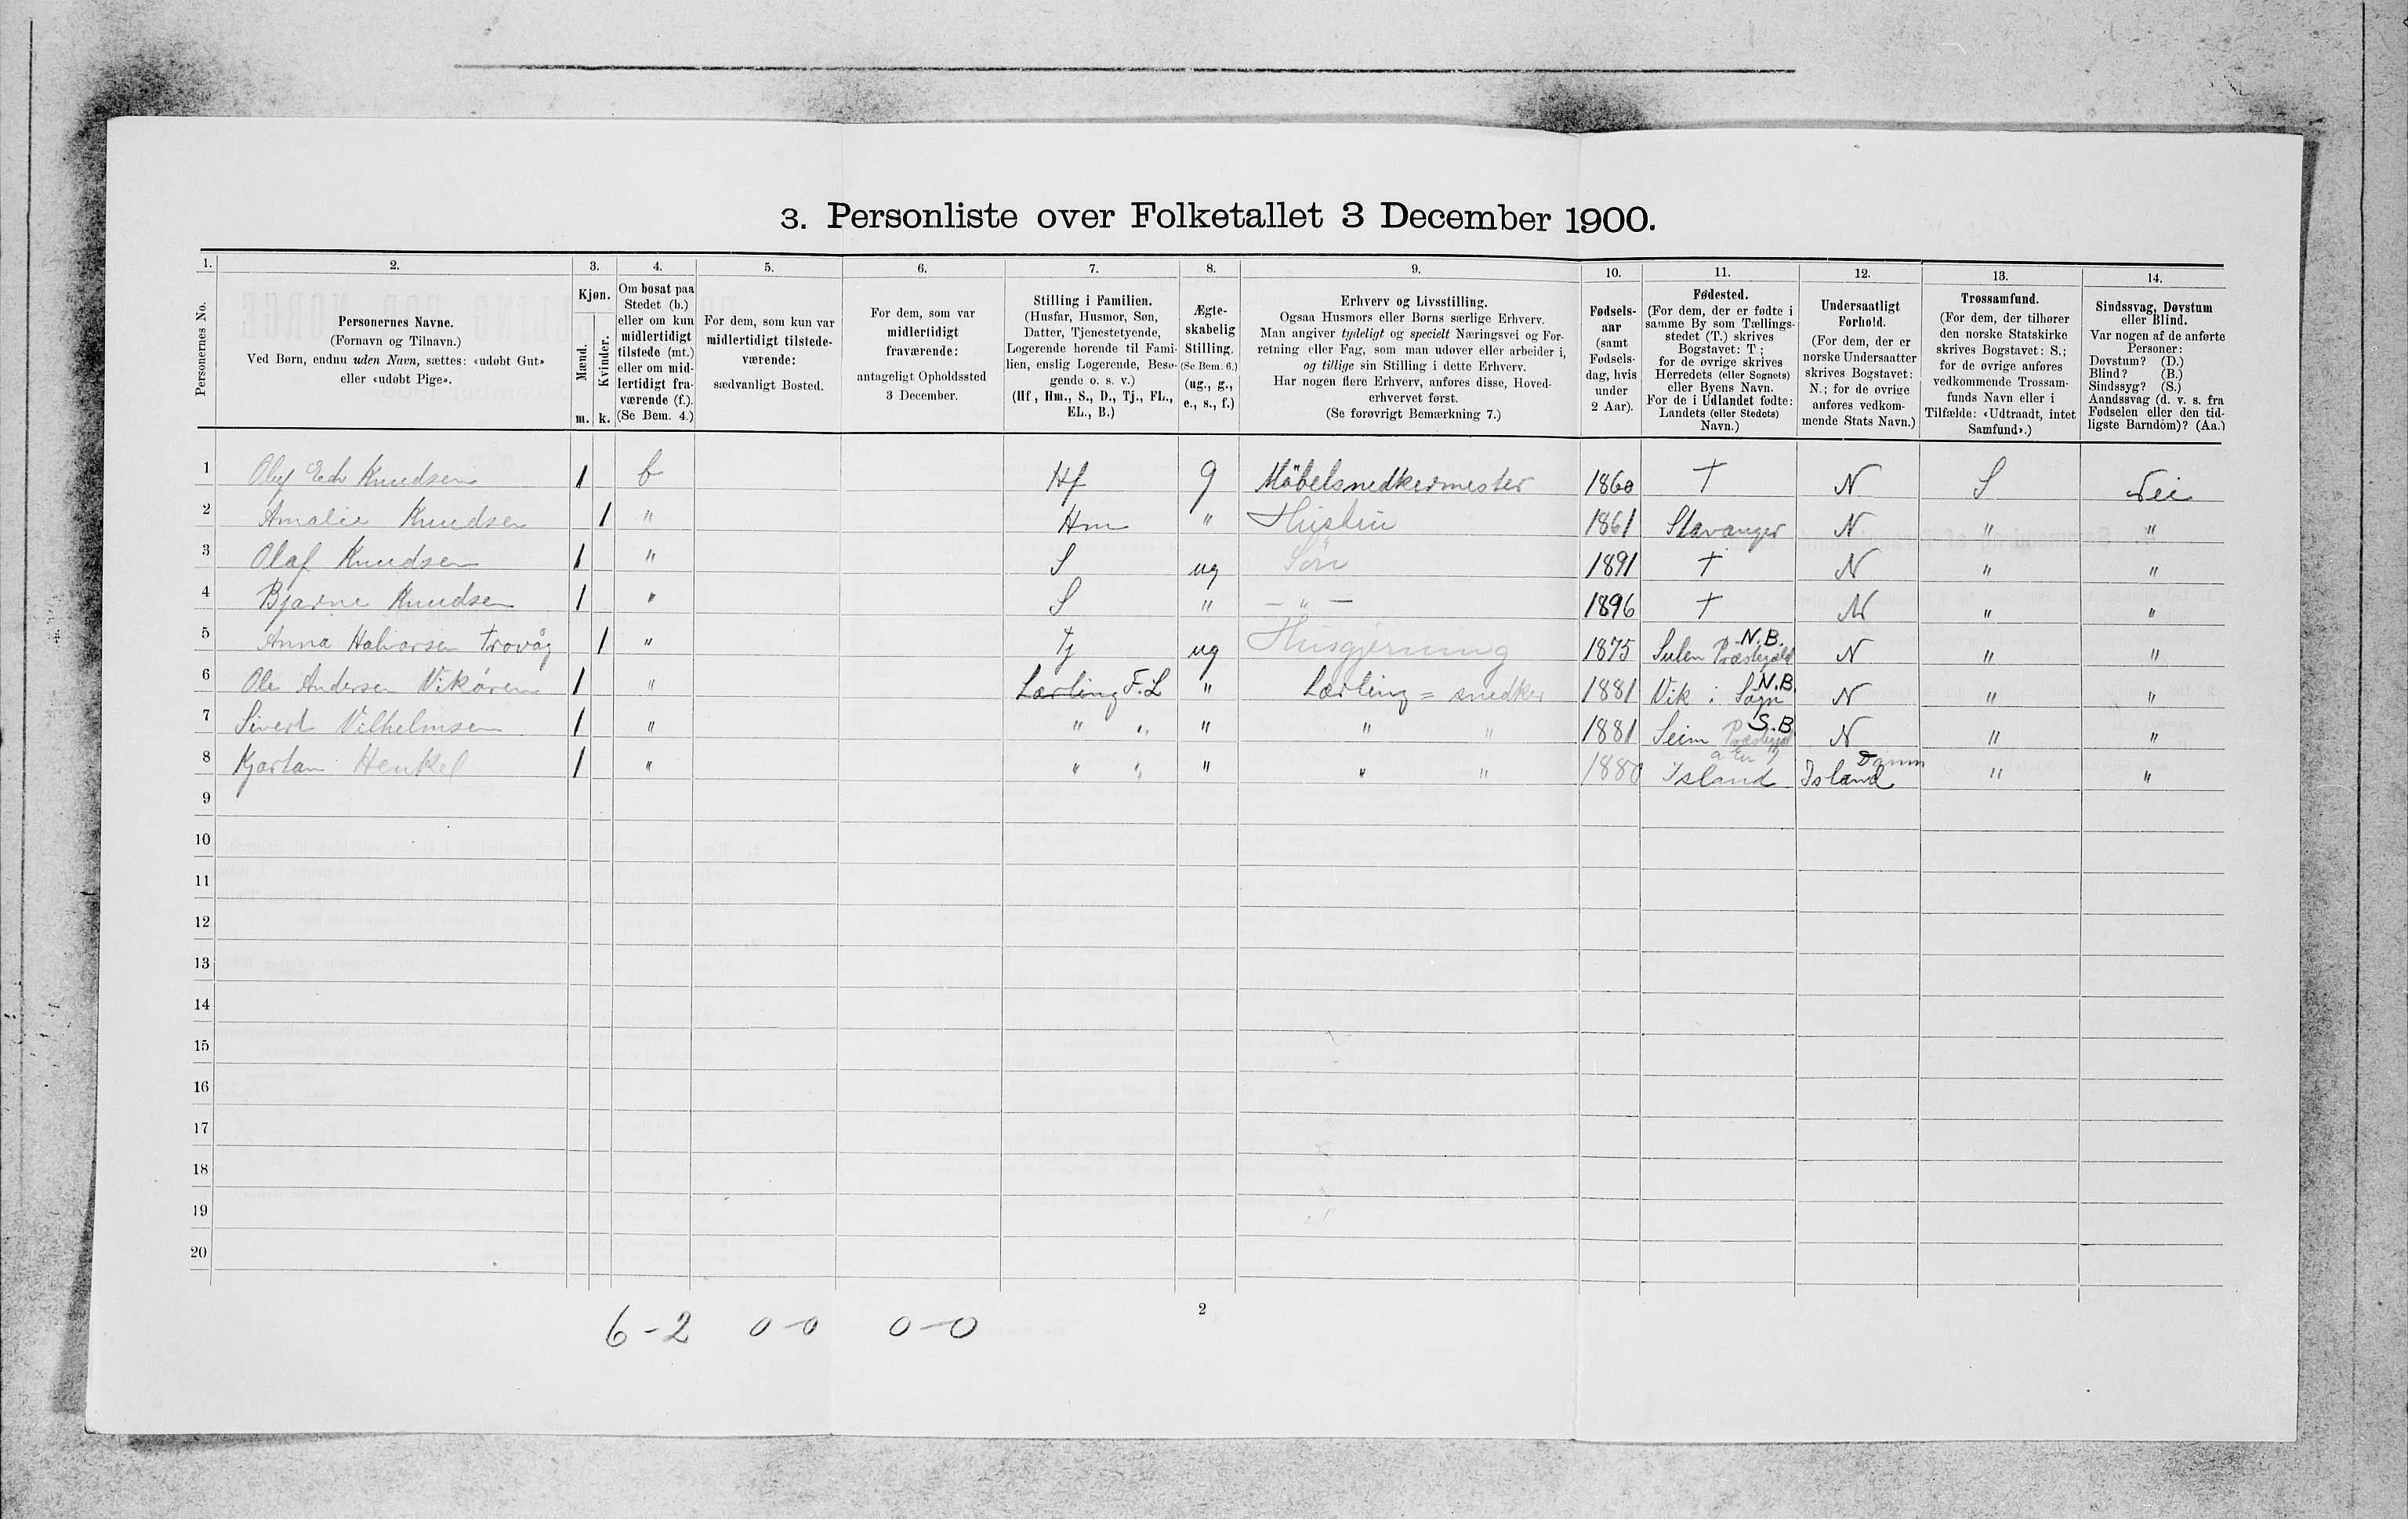 3. Personliste over Folketallet 3 December 1900.
1. 2. 3. 4. 5. 6. 7. 8. 9. 10. 11. 12. 13. 14.
Personernes No.
Personernes Navne.
(Fornavn og Tilnavn.)
Ved Børn, endnu uden Navn, sættes: «udøbt Gut»
eller «udøbt Pige».
Kjøn.
Mænd.
Kvinder.
m. k.
Om bosat paa
Stedet (b.)
eller om kun
midlertidigt
tilstede (mt.)
eller om mid-
lertidigt fra-
værende (f.).
(Se Bem. 4.)
For dem, som kun var
midlertidigt tilstede-
værende:
sædvanligt Bosted.
For dem, som var
midlertidigt
fraværende:
antageligt Opholdssted
3 December.
Stilling i Familien.
(Husfar, Husmor, Søn,
Datter, Tjenestetyende,
Logerende hørende til Fami-
lien, enslig Logerende, Besø-
gende o. s. v.)
(Hf, Hm., S., D., Tj., FL.,
EL., B.)
Ægte-
skabelig
Stilling.
(Se Bem. 6.)
(ug., g.,
e., s., f.)
Erhverv og Livsstilling.
Ogsaa Husmors eller Børns særlige Erhverv.
Man angiver tydeligt og specielt Næringsvei og For-
retning eller Fag, som man udøver eller arbeider i,
og tillige sin Stilling i dette Erhverv.
Har nogen flere Erhverv, anføres disse, Hoved-
erhvervet først.
(Se forøvrigt Bemærkning 7.)
Fødsels-
aar
(samt
Fødsels-
dag, hvis
under
2 Aar).
Fødested.
(For dem, der er fødte i
samme By som Tællings-
stedet (T.) skrives
Bogstavet: T;
for de øvrige skrives
Herredets (eller Sognets)
eller Byens Navn.
For de i Udlandet fødte:
Landets (eller Stedets)
Navn.)
Undersaatligt
Forhold.
(For dem, der er
norske Undersaatter
skrives Bogstavet:
N.; for de øvrige
anføres vedkom-
mende Stats Navn.)
Trossamfund.
(For dem, der tilhører
den norske Statskirke
skrives Bogstavet: S.;
for de øvrige anføres
vedkommende Trossam-
funds Navn eller i
Tilfælde: «Udtraadt, intet
Samfund».)
Sindssvag, Døvstum
eller Blind.
Var nogen af de anførte
Personer:
Døvstum? (D.)
Blind? (B.)
Sindssyg? (S.)
Aandssvag (d. v. s. fra
Fødselen eller den tid-
ligste Barndom)? (Aa.)
1 Oluf Edv Knudsen 1 b Hf g Möbelsnedkermester 1860 T N S Nei
2 Amalie Knudsen 1 " Hm " Hustru 1861 Stavanger N " "
3 Olaf Knudsen 1 " S ug Sön 1891 T N " "
4 Bjarne Knudsen 1 " S " — " — 1896 T N " "
5 Anna Halvorsen Trovåg 1 " Tj ug Husgjerning 1875 Sulen Præstegjeld N.B. N " "
6 Ole Andersen Vikören 1 " Lærling F.L " Lærling = snedker 1881 Vik i Sogn N.B. N " "
7 Sivert Vilhelmsen 1 " " " " " " 1881 Seim Præstegjeld S.B. N " "
8 Kjartan Henkel 1 " " " " " " 1880 Island Island Danm " "
9
10
11
12
13
14
15
16
17
18
19
20
2
6-2 0-0 0-0